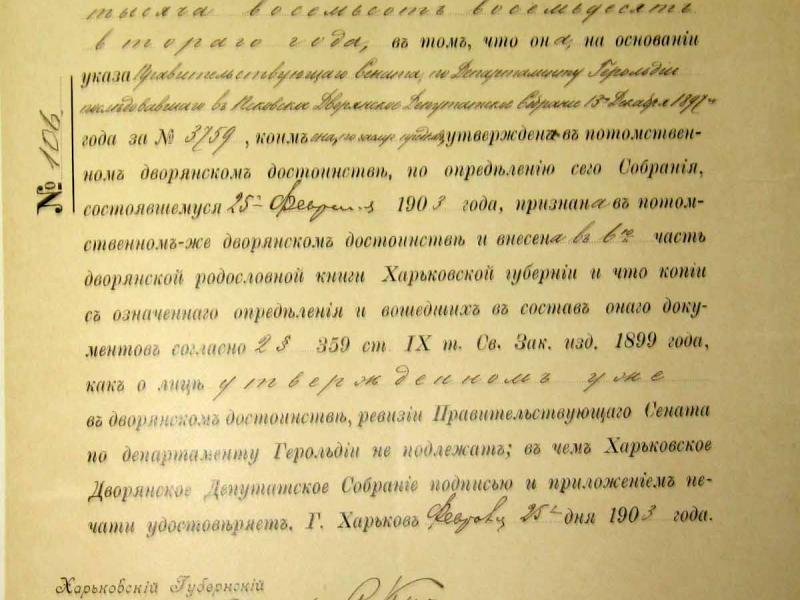 тысяча восемьсотъ восемьдесятъ
втораго года, въ томъ, что она, на основаніи
указа Правительствующаго Сената, по Департаменту Герольдіи
послѣдовавшаго въ Псковское Дворянское Депутатское Собраніе 15 Декабря 1897
года за № 3759, коимъ она, утверждена въ потомствен-
номъ дворянскомъ достоинствѣ, по опредѣленію сего Собранія,
состоявшемуся 25 Февраля 1903 года, признана въ потом-
ственномъ-же дворянскомъ достоинствѣ и внесена въ 6ю часть
дворянской родословной книги Харьковской губерніи и что копіи
съ означеннаго опредѣленія и вошедшихъ въ составъ онаго доку-
ментовъ согласно 2 § 359 ст IX т. Св. Зак. изд. 1899 года,
какъ о лицѣ утвержденномъ уже
въ дворянскомъ достоинствѣ, ревизіи Правительствующаго Сената
по департаменту Герольдіи не подлежатъ; въ чемъ Харьковское
Дворянское Депутатское Собраніе подписью и приложеніемъ пе-
чати удостовѣряетъ. Г. Харьковъ Февраля 25 дня 1903 года.
№ 106
Харьковскій Губернскій